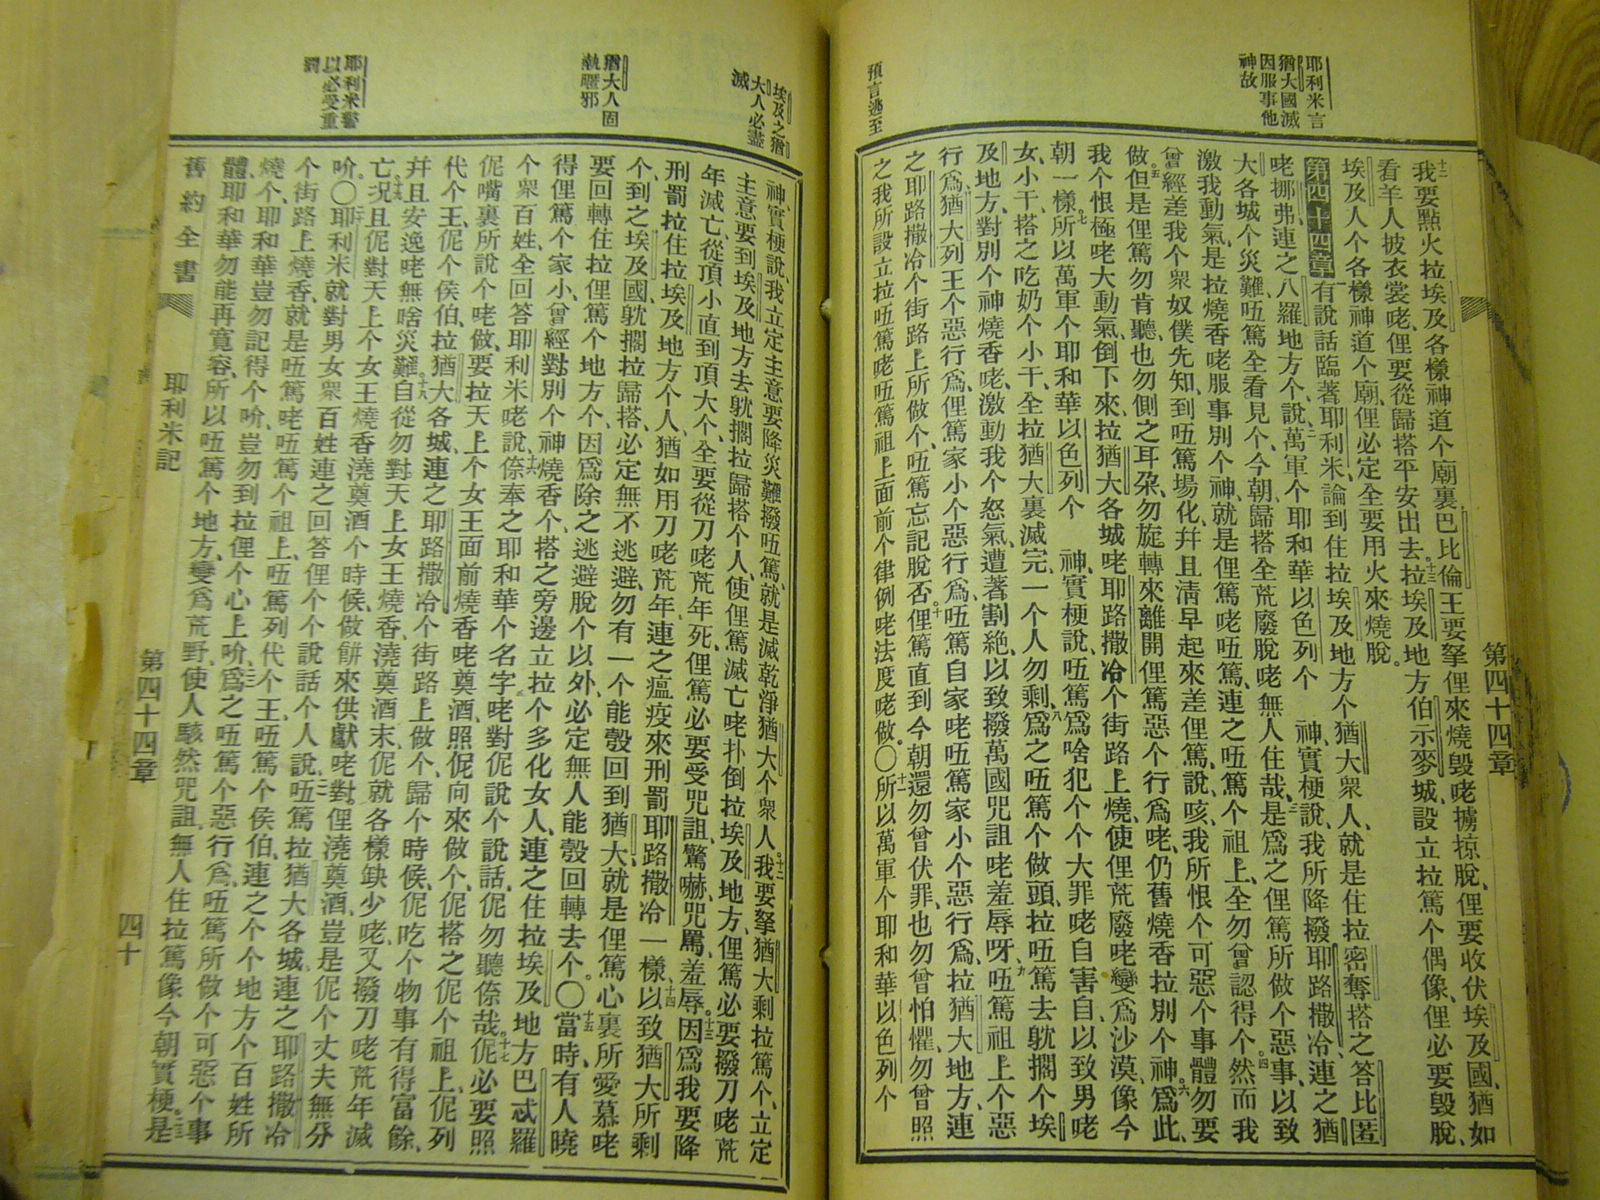 耶利米言
猶大國滅
因服事他
神故
預言逃至
第四十四章
十二我要點火拉埃及各樣神道个廟裏巴比倫王要拏俚來燒毁咾擄掠脫俚要收伏埃及國猶如
看羊人披衣裳咾俚要從歸搭平安出去十三拉埃及地方伯示麥城設立拉篤个偶像俚必要毁脫
埃及人个各樣神道个廟俚必定全要用火來燒脫
第四十四章 一有說話臨著耶利米論到住拉埃及地方个猶大衆人就是住拉密奪搭之答比匿
咾挪弗連之八羅地方个說二萬軍个耶和華以色列个 神實梗說我所降撥耶路撒冷連之猶
大各城个災難𠰻篤全看見个今朝歸搭全荒廢脫咾無人住哉三是爲之俚篤所做个惡事以致
激我動氣是拉燒香咾服事別个神就是俚篤咾𠰻篤連之𠰻篤个祖上全勿曾認得个四然而我
曾經差我个衆奴僕先知到𠰻篤場化幷且淸早起來差俚篤說咳我所恨个可惡个事體勿要
做五但是俚篤勿肯聽也勿側之耳朶勿旋轉來離開俚篤惡个行爲咾仍舊燒香拉別个神六爲此
我个恨極咾大動氣倒下來拉猶大各城咾耶路撒冷个街路上燒使俚荒廢咾變爲沙漠像今
朝一樣七所以萬軍个耶和華以色列个 神實梗說𠰻篤爲啥犯个个大罪咾自害自以致男咾
女小干搭之吃奶个小干全拉猶大裏滅完一个人勿剩八爲之𠰻篤个做頭拉𠰻篤去躭擱个埃
及地方對別个神燒香咾激動我个怒氣遭著割絕以致撥萬國咒詛咾羞辱呀九𠰻篤祖上个惡
行爲猶大列王个惡行爲俚篤家小个惡行爲𠰻篤自家咾𠰻篤家小个惡行爲拉猶大地方連
之耶路撒冷个街路上所做个𠰻篤忘記脫否十俚篤直到今朝還勿曾伏罪也勿曾怕懼勿曾照
之我所設立拉𠰻篤咾𠰻篤祖上面前个律例咾法度咾做〇十一所以萬軍个耶和華以色列个
埃及之猶
大人必盡
滅
猶大人固
執曬邪
耶利米警
以必受重
罰
神實梗說我立定主意要降災難撥𠰻篤就是滅乾淨猶大个衆人十二我要拏猶大剩拉篤个立定
主意要到埃及地方去躭擱拉歸搭个人使俚篤滅亡咾扑倒拉埃及地方俚篤必要撥刀咾荒
年滅亡從頂小直到頂大个全要從刀咾荒年死俚篤必要受咒詛驚嚇咒罵羞辱十三因爲我要降
刑罰拉住拉埃及地方个人猶如用刀咾荒年連之瘟疫來刑罰耶路撒冷一樣十四以致猶大所剩
个到之埃及國躭擱拉歸搭必定無不逃避勿有一个能彀回到猶大就是俚篤心裏所愛慕咾
要回轉住拉俚篤个地方个因爲除之逃避脫个以外必定無人能彀回轉去个〇十五當時有人曉
得俚篤个家小曾經對別个神燒香个搭之旁邊立拉个多化女人連之住拉埃及地方巴忒羅
个衆百姓全回答耶利米咾說十六倷奉之耶和華个名字咾對伲說个說話伲勿聽倷哉十七伲必要照
伲嘴裏所說个咾做要拉天上个女王面前燒香咾奠酒照伲向來做个伲搭之伲个祖上伲列
代个王伲个侯伯拉猶大各城連之耶路撒冷个街路上做个歸个時候伲吃个物事有得富餘
幷且安逸咾無啥災難十八自從勿對天上女王燒香澆奠酒末伲就各樣缺少咾又撥刀咾荒年滅
亡十九況且伲對天上个女王燒香澆奠酒个時候做餠來供獻咾對俚澆奠酒豈是伲个丈夫無分
吤〇二十耶利米就對男女衆百姓連之回答俚个个說話个人說二一𠰻篤拉猶大各城連之耶路撒冷
个街路上燒香就是𠰻篤咾𠰻篤个祖上𠰻篤列代个王𠰻篤个侯伯連之个个地方个百姓所
燒个耶和華豈勿記得个吤豈勿到拉俚个心上吤二二爲之𠰻篤个惡行爲𠰻篤所做个可惡个事
體耶和華勿能再寬容所以𠰻篤个地方變爲荒野使人駭然咒詛無人住拉篤像今朝實梗二三是
舊約全書
耶利米記
第四十四章
四十